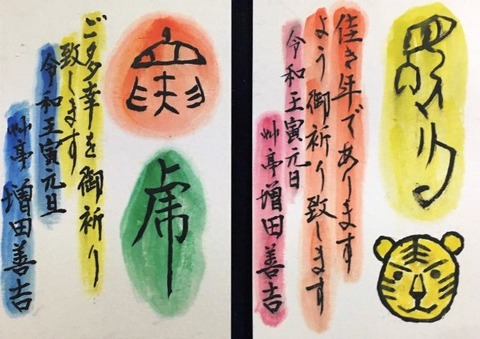 佳き年であります
よう御祈り致します
令和壬寅元日
艸亭増田善吉
虎
ご多幸を御祈り
致します
令和壬寅元旦
艸亭増田善吉